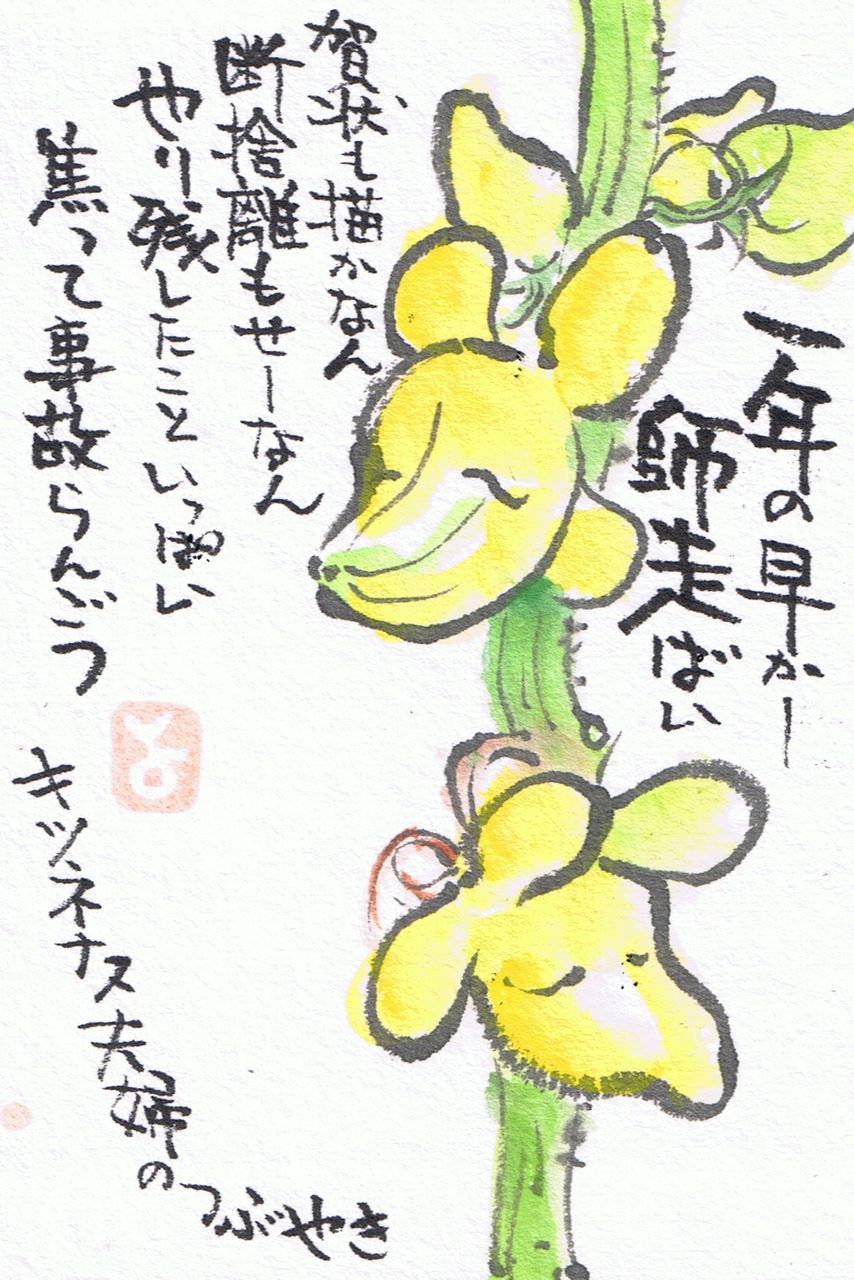 一年の早かー
師走ばい
賀状も描かなん
断捨離もせーなん
やり残したこといっぱい
焦って事故らんごつ
キツネナス夫婦の
つぶやき